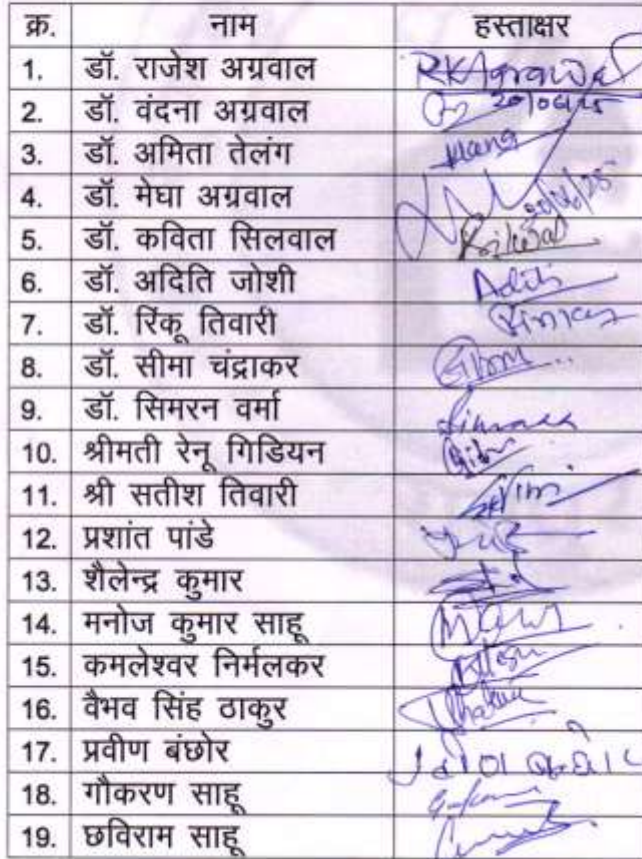 क्र. नाम हस्ताक्षर
1. डॉ. राजेश अग्रवाल RKAgrawal
2. डॉ. वंदना अग्रवाल 20/06/25
3. डॉ. अमिता तेलंग
4. डॉ. मेघा अग्रवाल 20/06/25
5. डॉ. कविता सिलवाल Silwal
6. डॉ. अदिति जोशी Aditi
7. डॉ. रिंकू तिवारी
8. डॉ. सीमा चंद्राकर
9. डॉ. सिमरन वर्मा
10. श्रीमती रेनू गिडियन
11. श्री सतीश तिवारी
12. प्रशांत पांडे
13. शैलेन्द्र कुमार
14. मनोज कुमार साहू
15. कमलेश्वर निर्मलकर
16. वैभव सिंह ठाकुर
17. प्रवीण बंछोर
18. गौकरण साहू
19. छविराम साहू